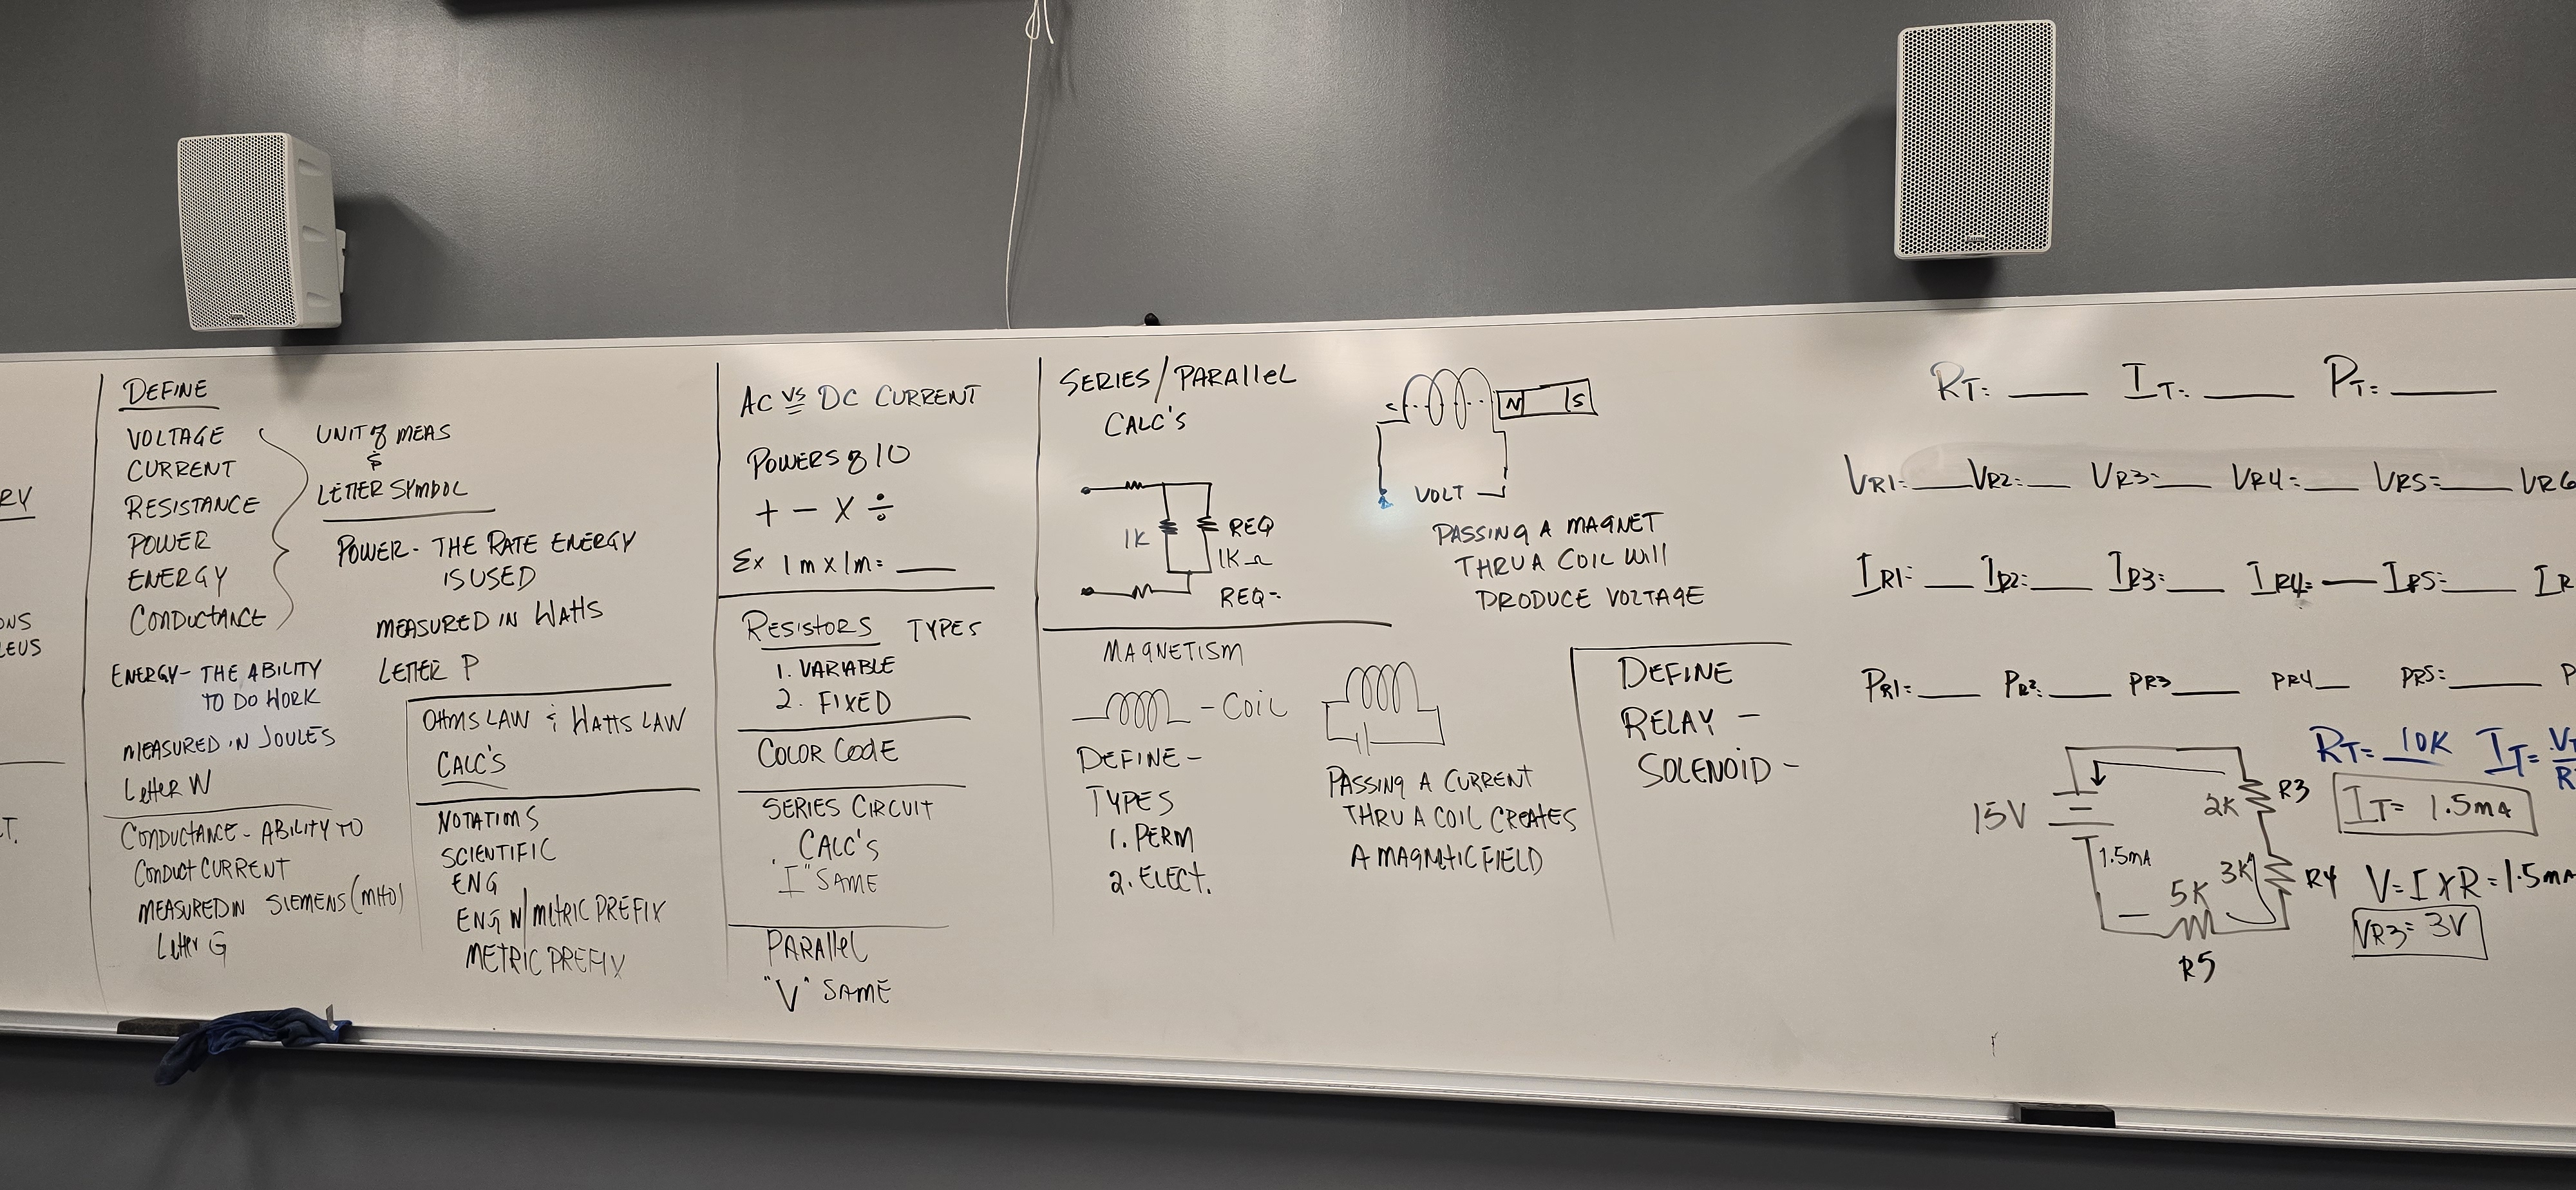 RY
ONS
LEUS
T.
DEFINE
VOLTAGE
CURRENT
RESISTANCE
POWER
ENERGY
CONDUCTANCE
UNIT of MEAS
&
LETTER SYMBOL
POWER - THE RATE ENERGY
IS USED
MEASURED IN WATTS
LETTER P
ENERGY - THE ABILITY
TO DO WORK
MEASURED IN JOULES
Letter W
CONDUCTANCE - ABILITY TO
CONDUCT CURRENT
MEASURED IN SIEMENS (MHO)
Letter G
OHMS LAW & WATTS LAW
CALC'S
NOTATIONS
SCIENTIFIC
ENG
ENG W/ METRIC PREFIX
METRIC PREFIX
AC VS DC CURRENT
POWERS of 10
+ - X ÷
EX 1m x 1m = ___
RESISTORS TYPES
1. VARIABLE
2. FIXED
COLOR CODE
SERIES CIRCUIT
CALC'S
"I" SAME
PARALLEL
"V" SAME
SERIES/PARALLEL
CALC'S
1K
REQ
1K Ω
REQ =
N S
VOLT
PASSING A MAGNET
THRU A COIL WILL
PRODUCE VOLTAGE
MAGNETISM
- COIL
DEFINE -
TYPES
1. PERM
2. ELECT.
PASSING A CURRENT
THRU A COIL CREATES
A MAGNATIC FIELD
DEFINE
RELAY -
SOLENOID -
RT = ___ IT = ___ PT = ___
VR1 = ___ VR2 = ___ VR3 = ___ VR4 = ___ VR5 = ___ VR6
IR1 = ___ IR2 = ___ IR3 = ___ IR4 = ___ IR5 = ___ IR
PR1 = ___ PR2 = ___ PR3 ___ PR4 ___ PR5 = ___ P
RT = 10K IT = VT
R
IT = 1.5mA
15V
1.5mA
2K R3
3K R4
5K
R5
V = I X R = 1.5mA
VR3 = 3V